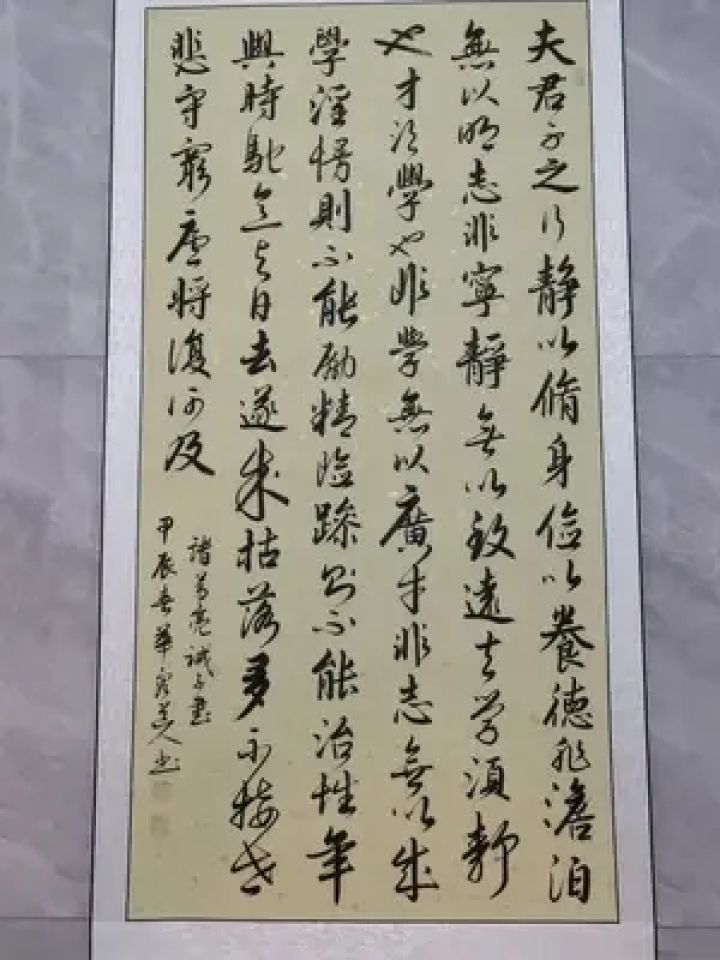 夫君子之行静以脩身儉以養德非澹泊
無以明志非寧靜無以致遠夫学須静
也才須學也非學無以廣才非志無以成
學淫慢則不能励精險躁則不能治性年
與時馳意与日去遂成枯落多不接世
悲守窮廬将復何及
諸葛亮誡子書
甲辰春華书